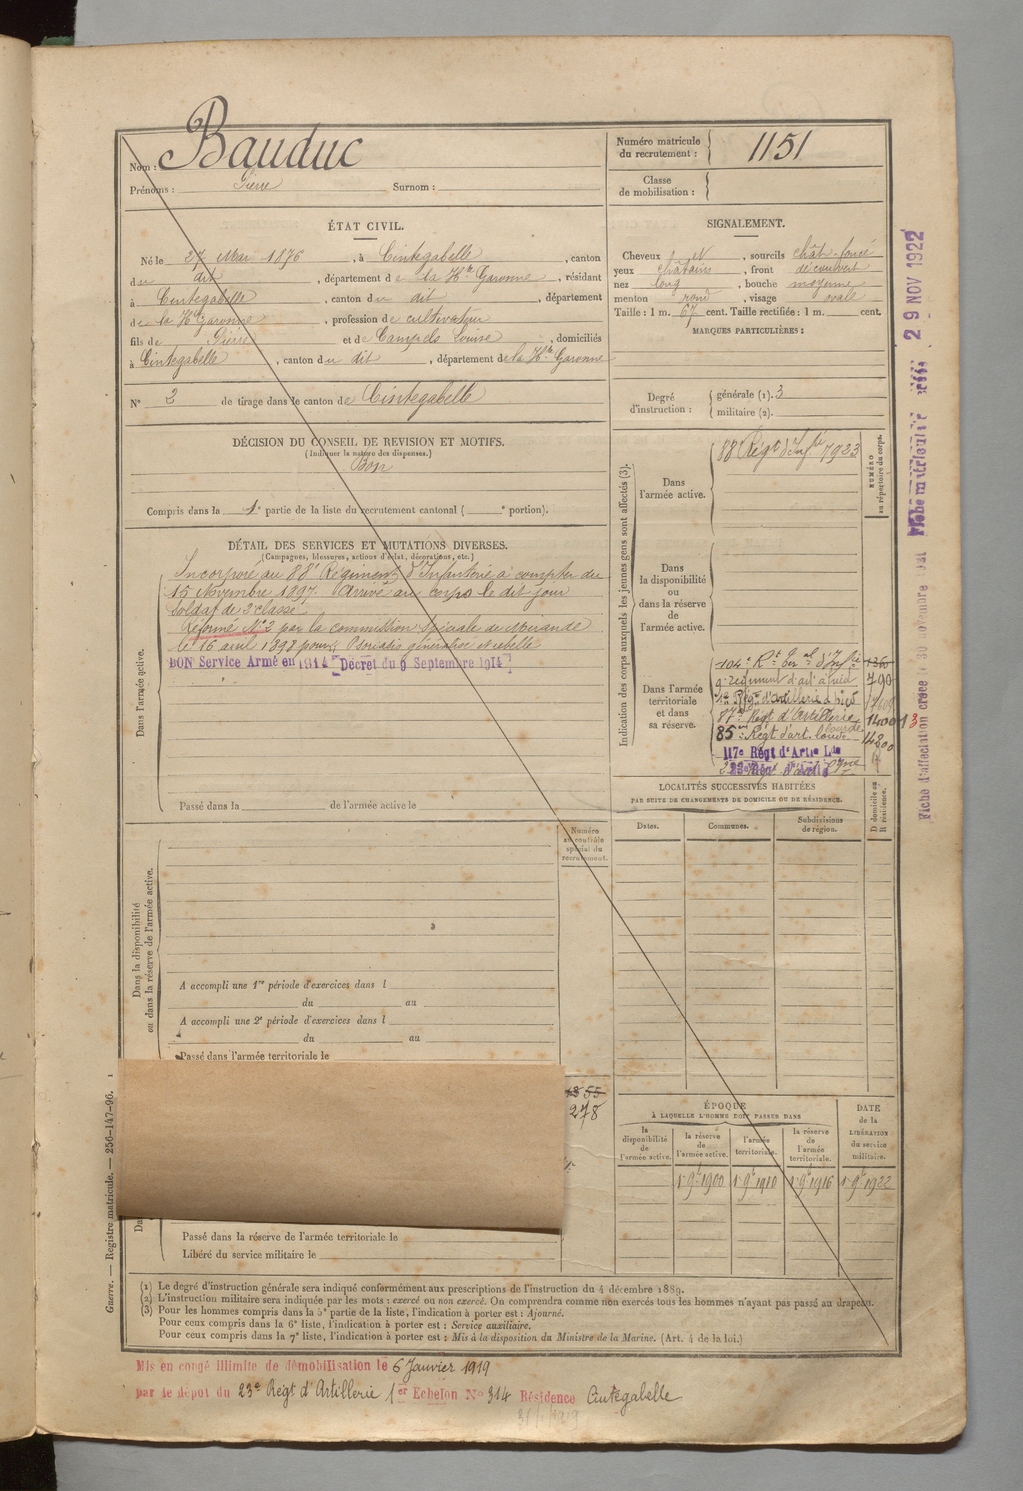 Nom : Bauduc
Prénoms : Pierre Surnom :
Numéro matricule du recrutement : 1151
Classe de mobilisation :
ÉTAT CIVIL.
Né le 27 Mai 1876, à Cintegabelle, canton
du dit, département de la Hte Garonne, résidant
à Cintegabelle, canton du dit, département
de la Hte Garonne, profession de cultivateur
fils de Pierre et de Campels Louise, domiciliés
à Cintegabelle, canton du dit, département de la Hte Garonne
N° 2 de tirage dans le canton de Cintegabelle
SIGNALEMENT.
Cheveux N, sourcils chât-foncé
yeux châtains, front découvert
nez long, bouche moyenne
menton rond, visage ovale
Taille : 1 m. 67 cent. Taille rectifiée : 1 m. cent.
MARQUES PARTICULIÈRES :
Degré d'instruction : générale (1). 3
militaire (2).
DÉCISION DU CONSEIL DE REVISION ET MOTIFS.
(Indiquer la nature des dispenses.)
Bon
Compris dans la 1e partie de la liste du recrutement cantonal ( e portion).
DÉTAIL DES SERVICES ET MUTATIONS DIVERSES.
(Campagnes, blessures, actions d'éclat, décorations, etc.)
Dans l'armée active.
Incorporé au 88e Régiment d'Infanterie à compter du
15 Novembre 1897. Arrivé au corps le dit jour
Soldat de 2e classe
Réformé N°2 par la commission Spéciale de Mirande
le 16 avril 1898 pour Psoriasis généralisé et rebelle
BON Service Armé en 1914 [Décret du 9 Septembre 1914]
Passé dans la de l'armée active le
Indication des corps auxquels les jeunes gens sont affectés (3).
NUMÉRO au répertoire du corps.
Dans l'armée active.
88e Régt d'Infie 7923
Dans la disponibilité ou dans la réserve de l'armée active.
Dans l'armée territoriale et dans sa réserve.
104e Rt d'Infie
9e régiment d'art à pied 790
Régt d'artillerie à pied
87e Régt d'Artillerie lourde 14001
85e Régt d'art. lourde 14800
117e Régt d'Artie Lde
LOCALITÉS SUCCESSIVES HABITÉES
PAR SUITE DE CHANGEMENTS DE DOMICILE OU DE RÉSIDENCE.
Dates. Communes. Subdivisions de région. D domicile ou R résidence.
Dans la disponibilité ou dans la réserve de l'armée active.
Numéro au contrôle spécial du recrutement.
A accompli une 1re période d'exercices dans l
du au
A accompli une 2e période d'exercices dans l
du au
Passé dans l'armée territoriale le
278
Passé dans la réserve de l'armée territoriale le
Libéré du service militaire le
ÉPOQUE
À LAQUELLE L'HOMME DOIT PASSER DANS
la disponibilité de l'armée active.
la réserve de l'armée active.
l'armée territoriale.
la réserve de l'armée territoriale.
DATE de la LIBÉRATION du service militaire.
1er 9bre 1900 1er 9bre 1910 1er 9bre 1916 1er 9bre 1922
(1) Le degré d'instruction générale sera indiqué conformément aux prescriptions de l'instruction du 4 décembre 1889.
(2) L'instruction militaire sera indiquée par les mots : exercé ou non exercé. On comprendra comme non exercés tous les hommes n'ayant pas passé au drapeau.
(3) Pour les hommes compris dans la 5e partie de la liste, l'indication à porter est : Ajourné.
Pour ceux compris dans la 6e liste, l'indication à porter est : Service auxiliaire.
Pour ceux compris dans la 7e liste, l'indication à porter est : Mis à la disposition du Ministre de la Marine. (Art. 4 de la loi.)
Guerre. — Registre matricule. — 256-147-96.
Mis en congé illimité de démobilisation le 6 Janvier 1919
par le dépôt du 23e Régt d'Artillerie 1er Echelon N° 314 Résidence Cintegabelle
29 NOV 1922